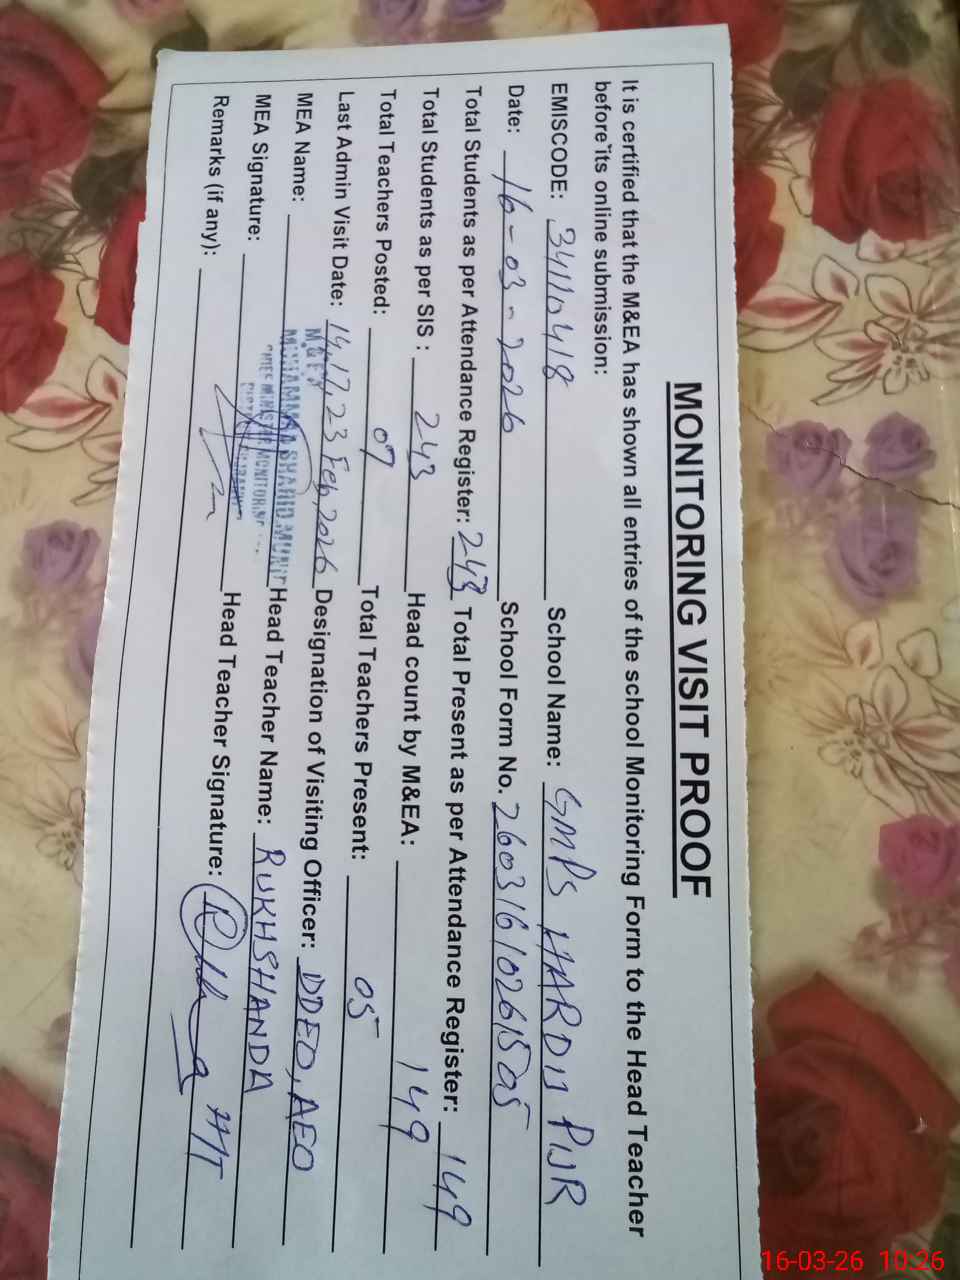 MONITORING VISIT PROOF
It is certified that the M&EA has shown all entries of the school Monitoring Form to the Head Teacher
before its online submission:
EMISCODE: 34110418 School Name: GMPS HARDIT PUR
Date: 16-03-2026 School Form No. 26031610261505
Total Students as per Attendance Register: 243 Total Present as per Attendance Register: 149
Total Students as per SIS : 243 Head count by M&EA: 149
Total Teachers Posted: 07 Total Teachers Present: 05
Last Admin Visit Date: 14, 17, 23 Feb, 2026 Designation of Visiting Officer: DDEO, AEO
MEA Name: MUHAMMAD SHAHID MUNIR Head Teacher Name: RUKHSHANDA
M&EA
CHIEF MINISTER MONITORING
MEA Signature: Head Teacher Signature:
Remarks (if any):
16-03-26 10:26